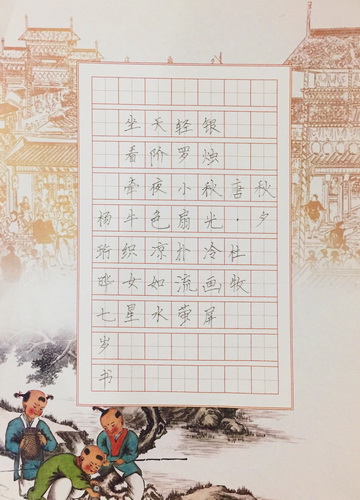 秋夕
唐·杜牧
银烛秋光冷画屏
轻罗小扇扑流萤
天阶夜色凉如水
坐看牵牛织女星
杨珩七岁书